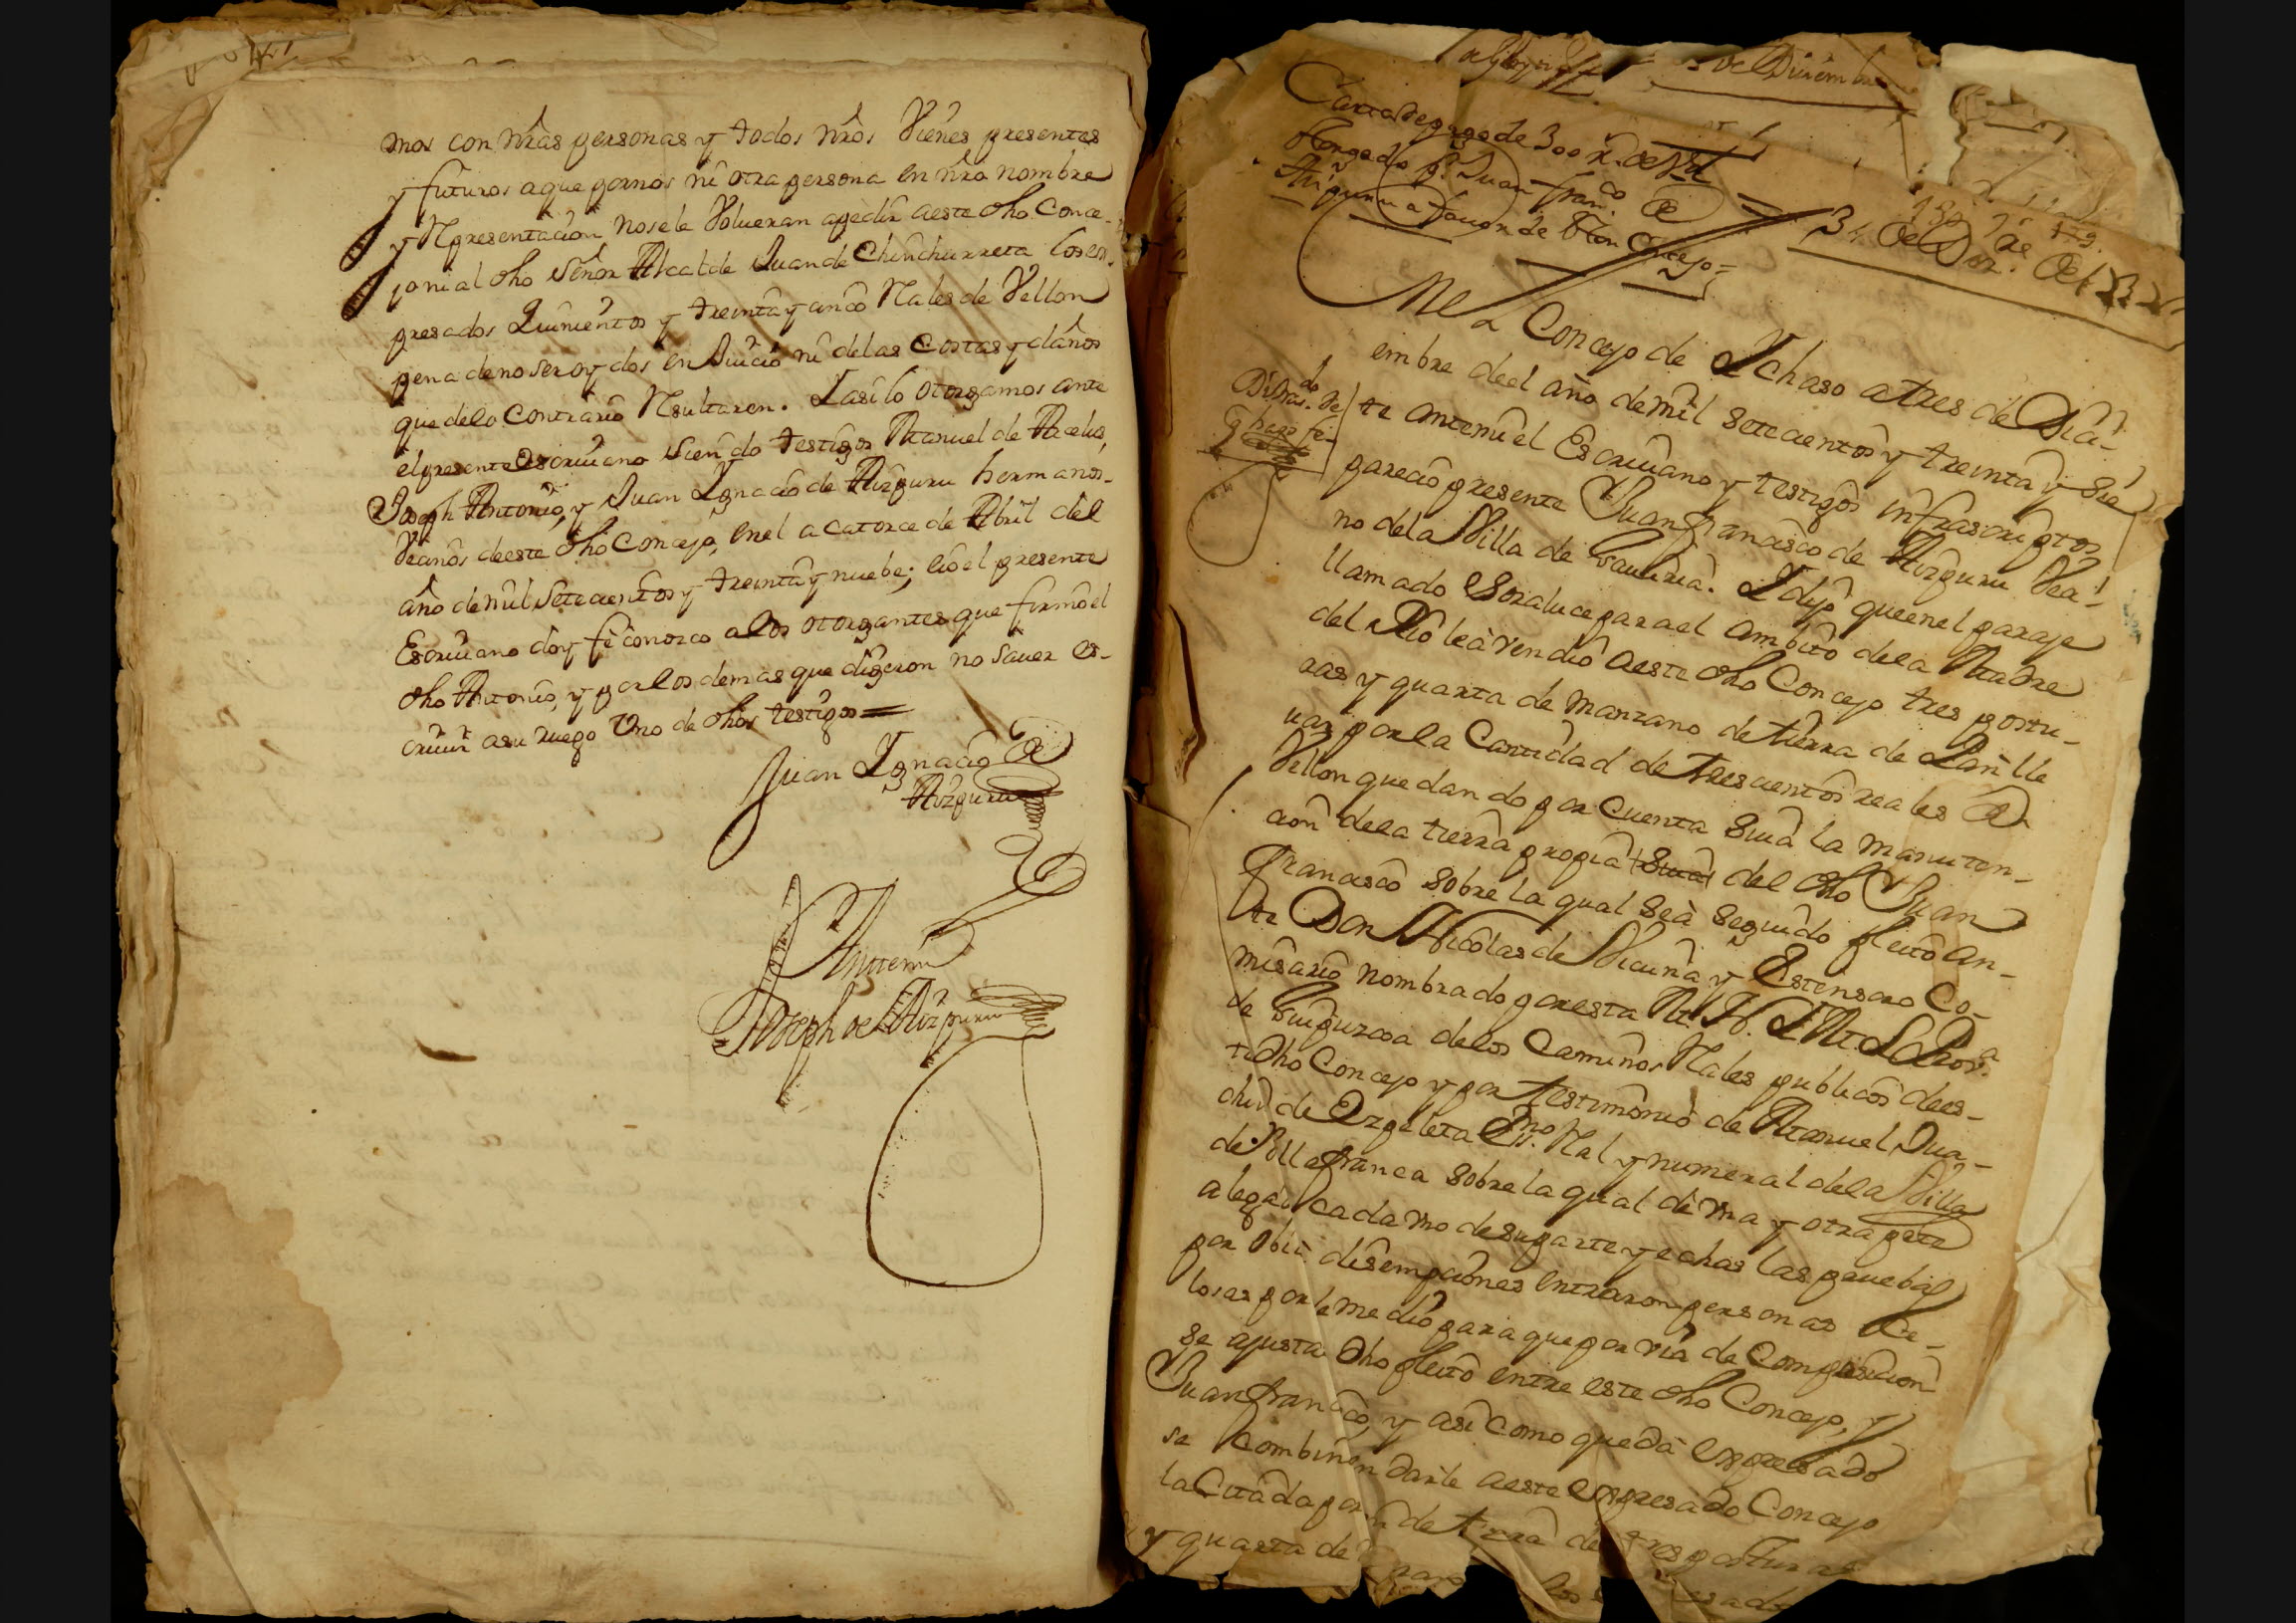 mos con nr̃as personas y todos nr̃os Vienes presentes
y futuros aque pornos ni otra persona en nr̃o nombre
y Rpresentacion nosele Volueran apedir aeste dho Conce-
jo ni al dho señor Alcalde Juan de Chinchurreta los ex-
presados Quinientos y treinta y cinco Rales de Vellon
pena de no ser oydos en Juicio ni delas Costas y daños
que delo Contrario Rsultaren. I asi lo otorgamos ante
el presente Escriuano siendo testigos Manuel de Arcelus,
Joseph Antonio, y Juan Ignacio de Aizpuru hermanos.
Vecinos deeste dho Concejo, en el a catorce de Abril del
año de mil setecientos y treinta y nuebe; eio el presente
Escriuano doy fe conozco alos otorgantes que firmo el
dho Antonio, y por los demas que digeron no sauer es-
criuir asu ruego Uno de dhos testigos =
Juan Ignacio de
Aizpuru
Antemi
Joseph de Aizpuru
de Diciem
Carta de pago de 300 rs. de
otorgada pr. Juan Franco. de
Aizpuru a fauor de Concejo =
3, de Dze. de
En el Concejo de Ichaso a tres de Dici-
embre deel año de mil setecientos y treinta y sie
te antemi el Escriuano y testigos infrascriptos
parecio presente Juan francisco de Aizpuru Veci-
no dela Villa de Gauiria. I dijo queenel paraje
llamado Soraluce para el ambito dela Madre
del Rio le à vendido aeste dho Concejo tres postu-
ras y quarta de manzano de tierra de
uar por la Cantidad de trescientos reales de
Vellon quedando por cuenta Suia la manuten-
cion dela tierra propia Suia del dho Juan
Francisco sobre la qual seà seguido pleito an-
te Don Nicolas de Vicuña y Estensoro Co-
misario nombrado por esta M. N. I M. L. Prova.
de Guipuzcoa delos Caminos Rales publicos dees-
te dho Concejo y por testimonio de Manuel Ina-
chio de Ezpeleta Essno. Ral y numeral dela Villa
de Villafranca sobre la qual de vna y otra parte
alegado cada vno de su parte y echas las pruebas
por obiar disempciones entraron personas Ce-
losas por le medio para que por via de Composicion
se ajusta dho pleito entre este dho Concejo, y
Juan francisco, y asi como queda expresado
se combinen darle aeste expresado Concejo
la Citada por de tierra de tres posturas
y quarta de